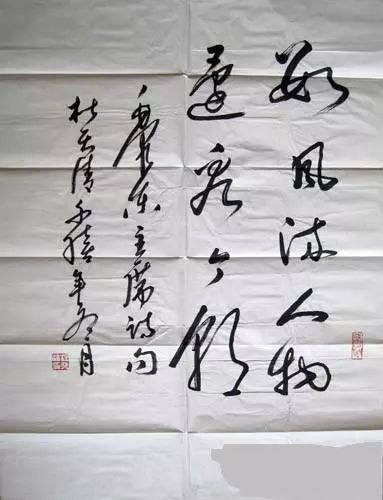 数风流人物
還看今朝
毛泽东主席诗句
杜天清千禧年月